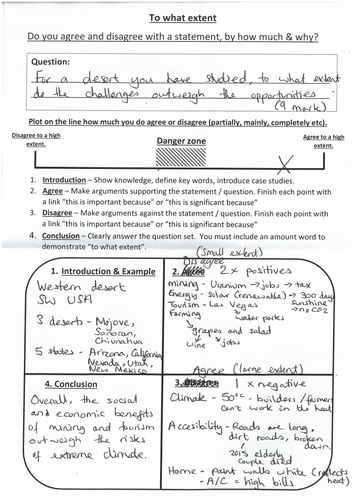 To what extent
Do you agree and disagree with a statement, by how much & why?
Question:
For a desert you have studied, to what extent
do the challenges outweigh the opportunities
(9 mark)
Plot on the line how much you do agree or disagree (partially, mainly, completely etc).
Disagree to a high
extent.
Danger zone
Agree to a high
extent.
1. Introduction – Show knowledge, define key words, introduce case studies.
2. Agree – Make arguments supporting the statement / question. Finish each point with
a link "this is important because" or "this is significant because"
3. Disagree – Make arguments against the statement / question. Finish each point with
a link "this is important because" or "this is significant because"
4. Conclusion – Clearly answer the question set. You must include an amount word to
demonstrate "to what extent".
(Small extent)
1. Introduction & Example
Western desert
SW USA
3 deserts - Mojove,
Sonoran,
Chihuahua
5 states - Arizona, California
Nevada, Utah,
New Mexico
Disagree
2. Agree 2x positives
mining - Uranium → jobs → tax
Energy - Solar (renewable) → 300 days
sunshine
→ no CO2
Tourism - Las Vegas
→ water parks
Farming
→ grapes and salad
wine
jobs
4. Conclusion
Overall, the social
and economic benefits
of mining and tourism
outweigh the risks
of extreme climate.
Agree (large extent)
3. Disagree 1x negative
Climate - 50°C - builders / farmers
can't work in the heat
Accesibility - Roads are long,
dirt roads, broken
down
→ 2015 elderly
couple died
Home - paint walls white (reflects
heat)
- A/C = high bills